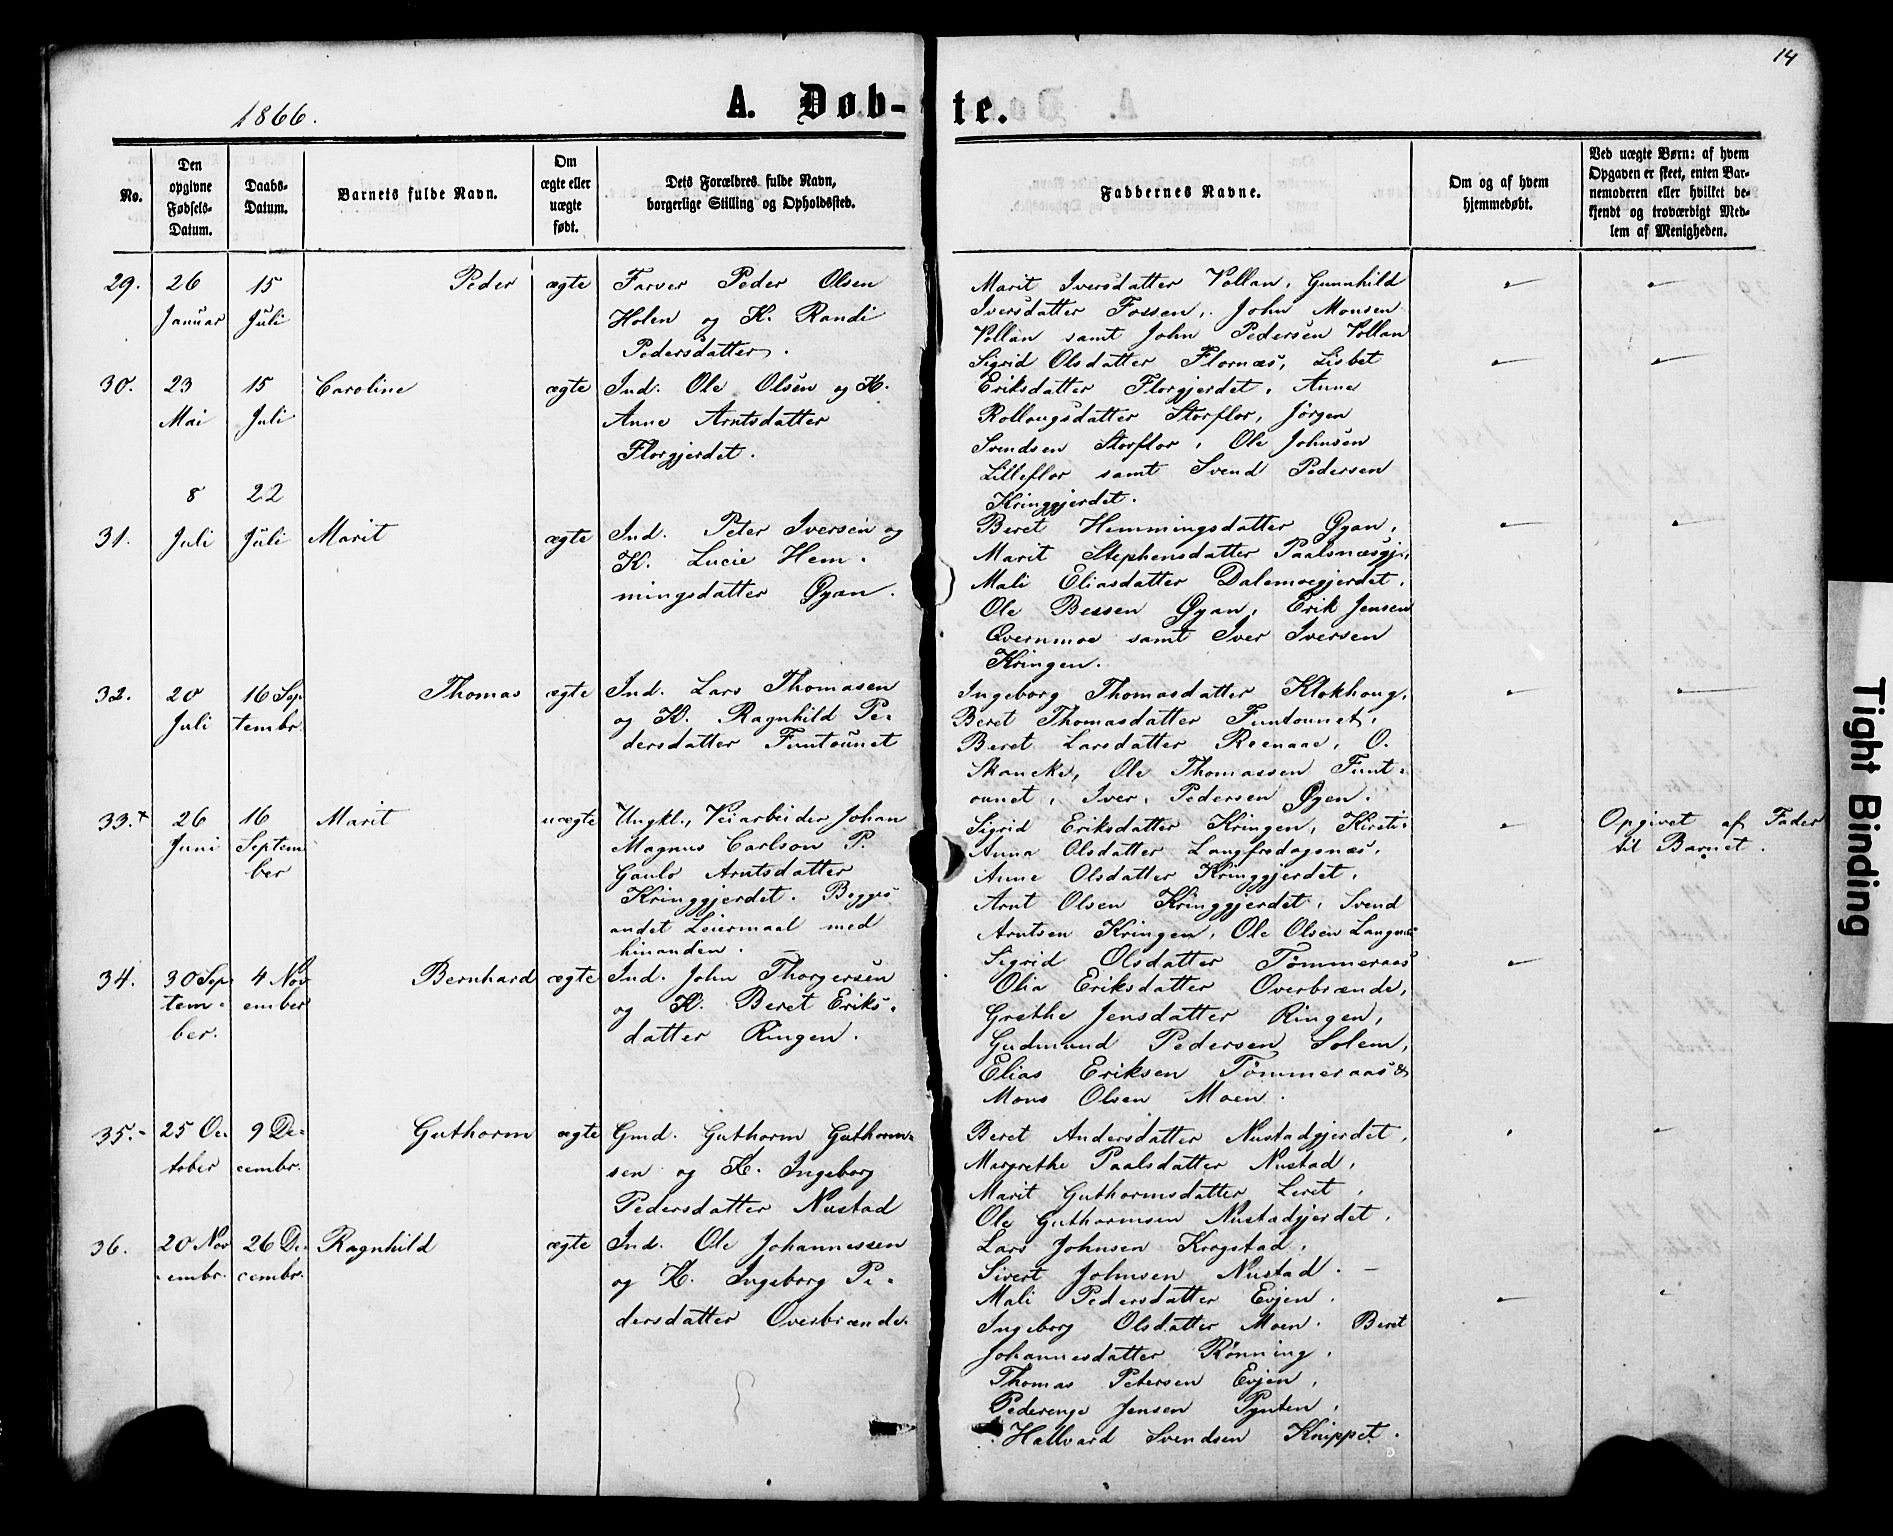 14
1866.
A. Døb-te.
No.
Den opgivne Fødsels-Datum.
Daabs-Datum.
Barnets fulde Navn.
Om ægte eller uægte født.
Dets Forældres fulde Navn, borgerlige Stilling og Opholdssted.
Faddernes Navne.
Om og af hvem hjemmedøbt.
Ved uægte Børn: af hvem Opgaven er skeet, enten Barnemoderen eller hvilket bekjendt og troværdigt Medlem af Menigheden.
29. 26 Januar 15 Juli Peder ægte
Farver Peder Olsen
Holen og K. Randi
Pedersdatter.
Marit Iversdatter Vollan, Gunnhild
Iversdatter Fossen, John Monsen
Vollan samt John Pedersen Vollan
30. 23 Mai 15 Juli Caroline ægte
Ind. Ole Olsen og K.
Anne Arntsdatter
Florgjerdet.
Sigrid Olsdatter Flornæs, Lisbet
Eriksdatter Florgjerdet, Anne
Rollaugsdatter Storflor, Jørgen
Svendsen Storflor, Ole Johnsen
Lilleflor samt Svend Pedersen
Kringgjerdet.
31. 8 Juli 22 Juli Marit ægte
Ind. Peter Iversen og
K. Lucie Hem-
mingsdatter Øyan.
Beret Hemmingsdatter Øyan,
Marit Stephensdatter Paalsnæsgj.,
Mali Eliasdatter Dalemoegjerdet,
Ole Bessen Øyan, Erik Jensen
Øvernmoe samt Iver Iversen
Kringen.
32. 20 Juli 16 September Thomas ægte
Ind. Lars Thomasen
og K. Ragnhild Pe-
dersdatter Funtaunet
Ingeborg Thomasdatter Klokhaug,
Beret Thomasdatter Funtaunet,
Beret Larsdatter Reenaae, O.
Skancke, Ole Thomassen Funt-
aunet, Iver Pedersen Øyen.
33.+ 26 Juni 16 September Marit uægte
Ungkl., Veiarbeider Johan
Magnus Carlson P.
Gaulo Arntsdatter
Kringgjerdet. Begges
andet Leiermaal med
hinanden.
Sigrid Eriksdatter Kringen, Kirsti-
Anna Olsdatter Langfrsdagsnæs,
Anne Olsdatter Kringgjerdet,
Arnt Olsen Kringgjerdet, Svend
Arntsen Kringen, Ole Olsen Langnæs
Opgivet af Fader
til Barnet.
34. 30 September. 4 November Bernhard ægte
Ind. John Thorgersen
og K. Beret Eriks-
datter Ringen.
Sigrid Olsdatter Tömmeraas
Olia Eriksdatter Overbrænde,
Grethe Jensdatter Ringen,
Gudmund Pedersen Solem,
Elias Eriksen Tömmeraas &
Mons Olsen Moen.
35.- 25 October 9 Decembr. Guthorm ægte
Gmd. Guthorm Guthorm-
sen og K. Ingeborg
Pedersdatter Nustad
Beret Andersdatter Nustadgjerdet,
Margrethe Paalsdatter Nustad,
Marit Guthormsdatter Leret,
Ole Guthormsen Nustadgjerdet,
Lars Johnsen Krogstad,
Sivert Johnsen Nustad. -
36. 20 Novembr. 26 Decembr. Ragnhild ægte
Ind. Ole Johannessen
og K. Ingeborg Pe-
dersdatter Overbrænde.
Mali Pedersdatter Evjen.
Ingeborg Olsdatter Moen. Beret
Johannesdatter Rønning,
Thomas Petersen Evjen,
Jensen Pynten,
Hallvard Svendsen Knippet.
Tight Binding